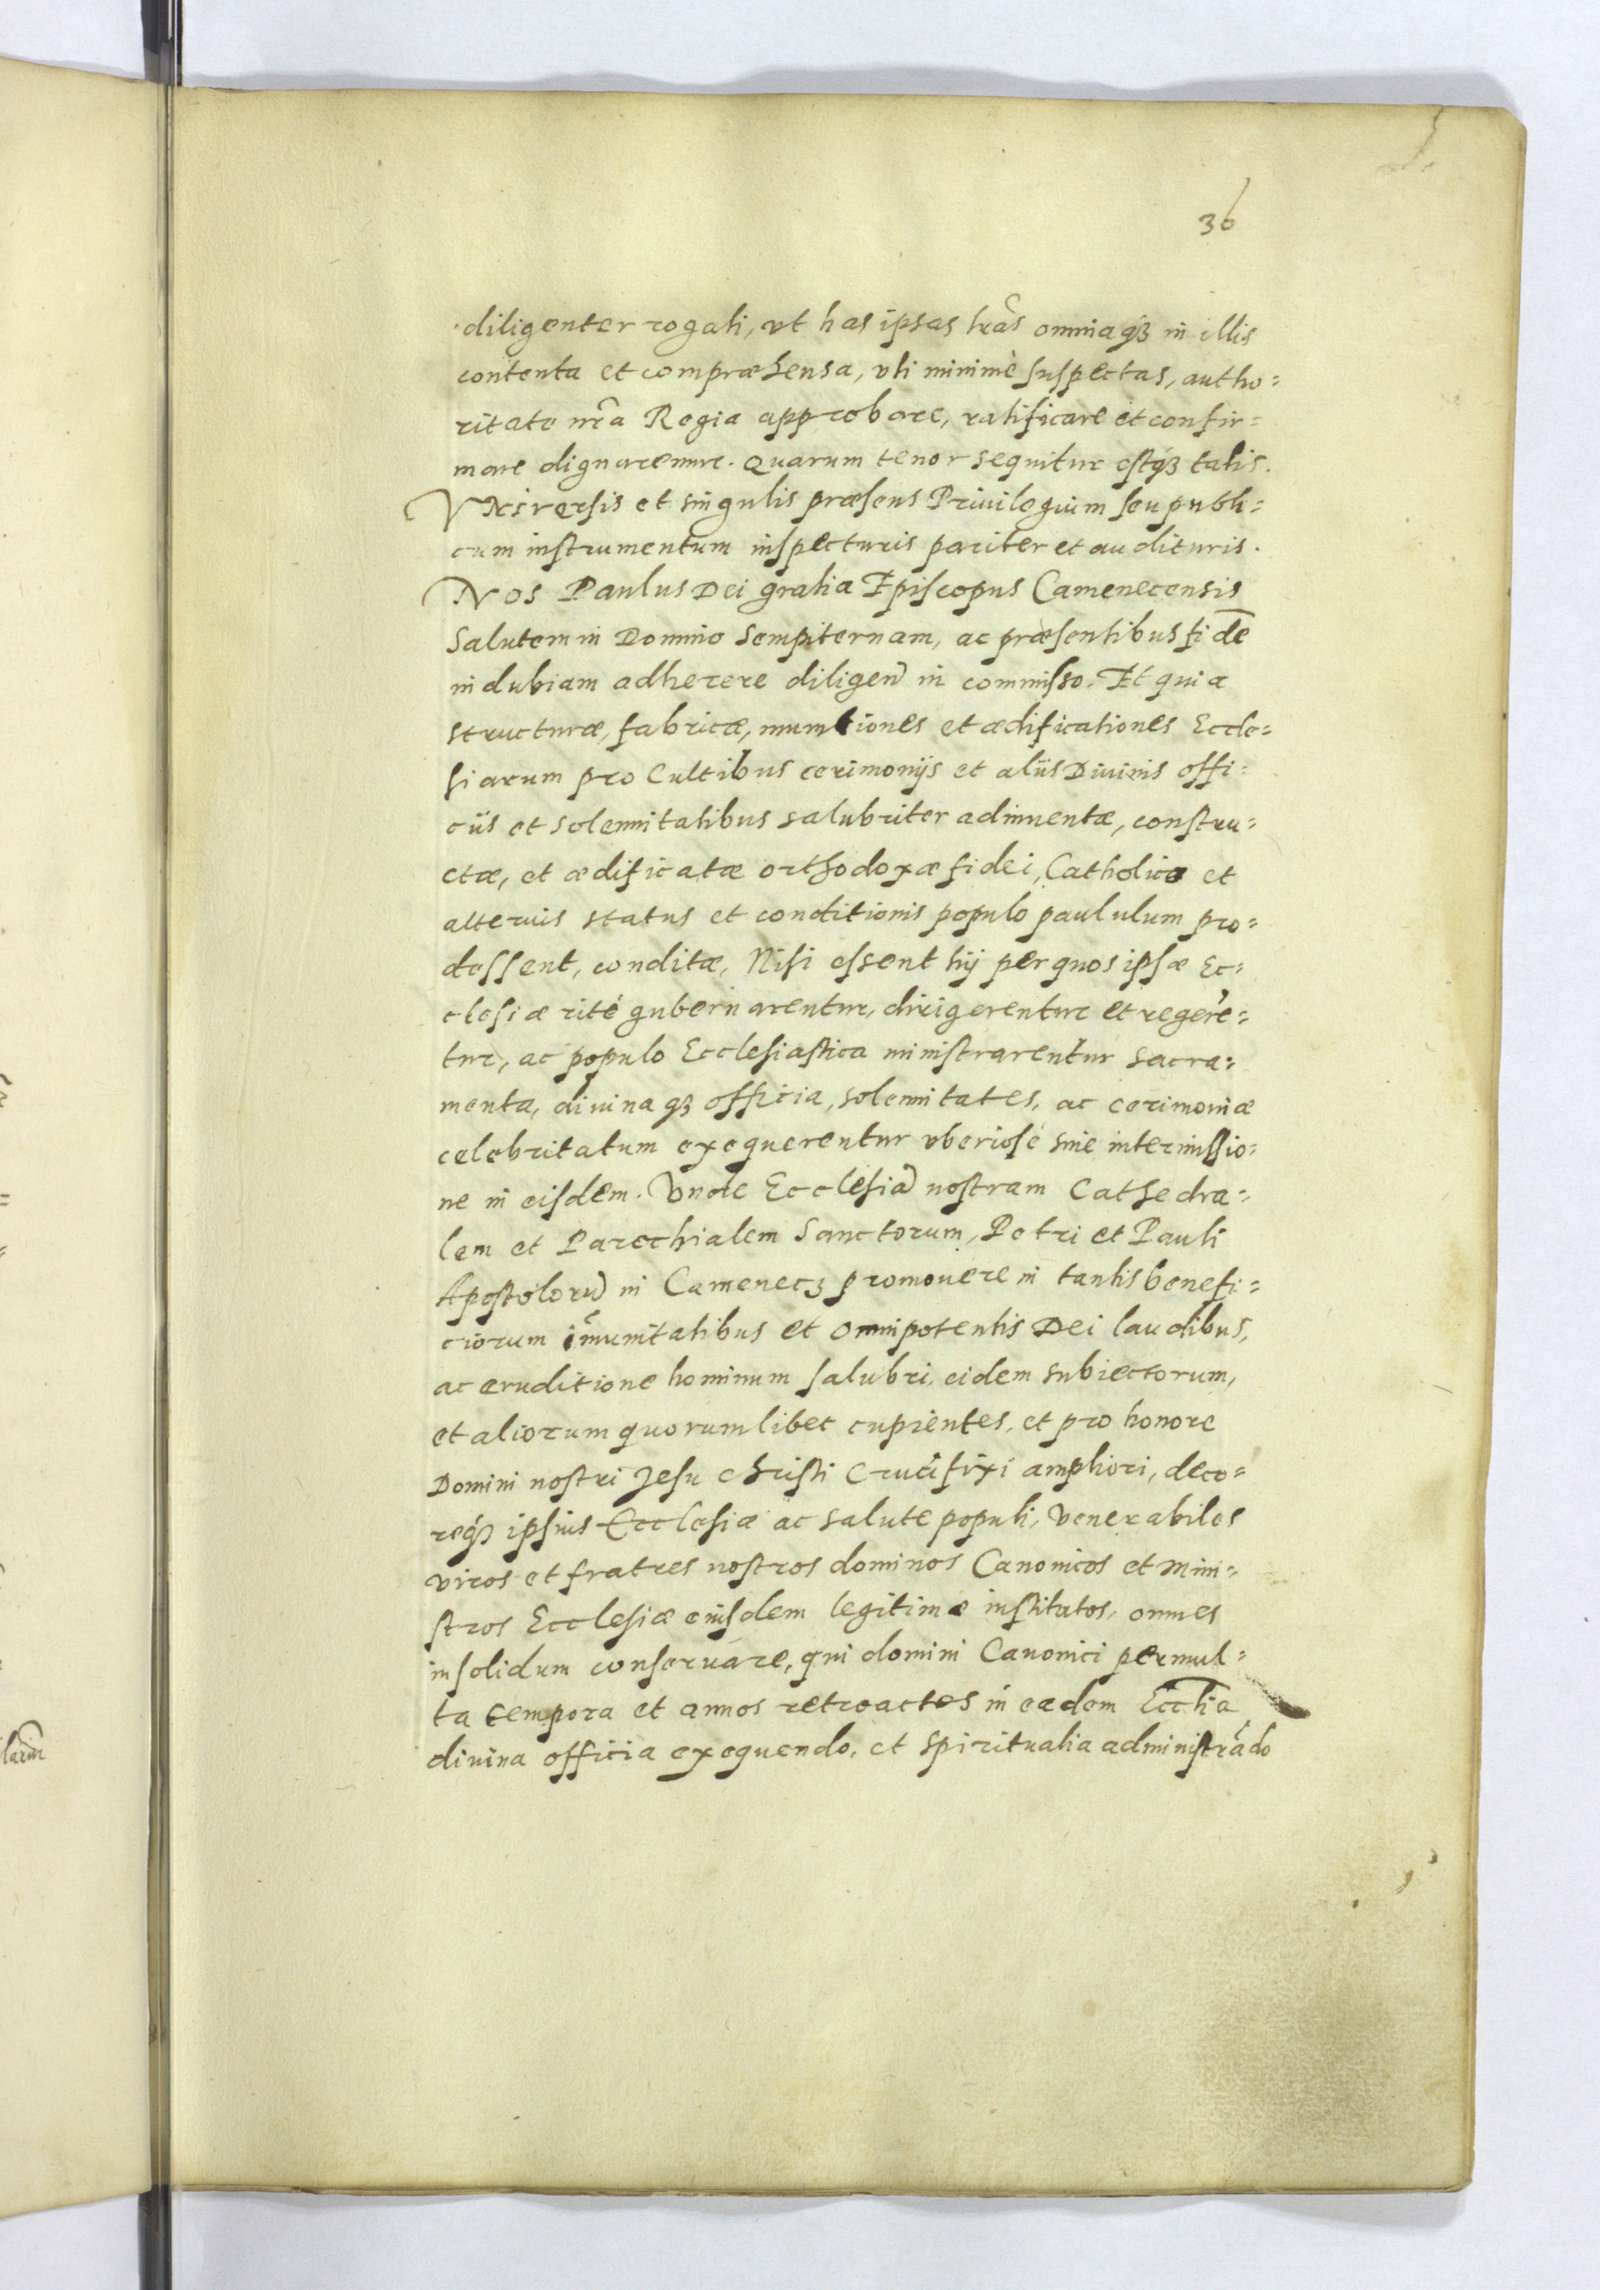 36
diligenter rogati, vt has ipsas lr̃as omniaq́ꝫ in illis
contenta et compræhensa, vti minimè suspectas, autho=
ritate nr̃a Regia approbare, ratificare et confir=
mare dignaremur. Quarum tenor sequitur estq́ꝫ talis.
VNiversis et singulis præsens Priuilegium seu publi=
cum instrumentum inspecturis pariter et audituris.
Nos Paulus Dei gratia Episcopus Camenecensis
Salutem in Domino Sempiternam, ac præsentibus fidẽ
indubiam adherere diligen̄ in commisso. Et quia
structuræ, fabricæ, munitiones et ædificationes Eccle=
siarum pro Cultibus cerimonijs et alijs Diuinis offi=
cijs et solennitatibus salubriter adinuentæ, constru=
ctæ, et ædificatæ orthodoxæ fidei, Catholico et
alterius status et conditionis populo paululum pro=
dessent, conditæ, Nisi essent hij per quos ipsæ Ec=
clesiæ rité gubernarentur, dirigerentur et regerẽ=
tur, ac populo Ecclesiastica ministrarentur sacra=
menta, diuinaqꝫ officia, solennitates, ac cerimoniæ
celebritatum exequerentur vberiosé sine intermissio=
ne in eisdem. Vnde Ecclesiā nostram Cathedra=
lem et Parochialem Sanctorum, Petri et Pauli
Apostolorū in Camenecꝫ promouere in tantis benefi=
ciorum im̃unitatibus et omnipotentis Dei laudibus,
ac eruditione hominum salubri, eidem subiectorum,
et aliorum quorumlibet cupientes, et pro honore
Domini nostri Jesu Christi Crucifixi ampliori, deco=
req́ꝫ ipsius Ecclesiæ ac salute populi, Venerabiles
viros et fratres nostros dominos Canonicos et Mini=
stros Ecclesiæ eiusdem legitimæ institutos, omnes
insolidum conseruare, qui domini Canonici permul=
ta tempora et annos retroactos in eadem Ecclīa
diuina officia exequendo, et spiritualia administrãdo